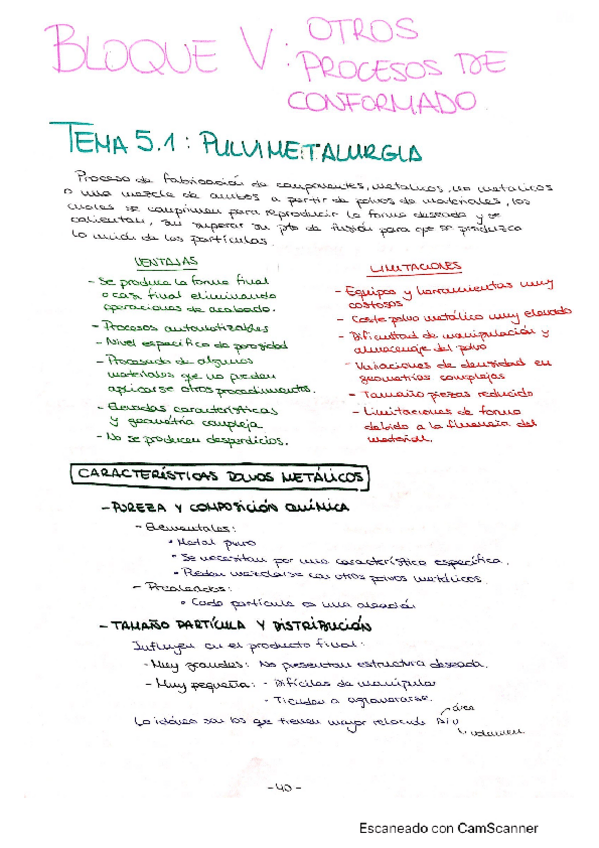 BLOQUE V: OTROS
PROCESOS DE
CONFORMADO.
TEMA 5.1: PULVIMETALURGIA
Proceso de fabricación de componentes, metálicos, no metálicos
o una mezcla de ambos a partir de polvos de materiales, los
cuales se comprimen para reproducir la forma deseada y se
calientan, sin superar su pto de fusión para que se produzca
la unión de las partículas.
VENTAJAS
- Se produce la forma final
o casi final eliminando
operaciones de acabado.
- Procesos automatizables
- Nivel específico de porosidad
- Procesado de algunos
materiales que no pueden
aplicarse otros procedimientos.
- Elevadas características
y geometría compleja
- No se producen desperdicios.
LIMITACIONES
- Equipos y herramientas muy
costosos
- Coste polvo metálico muy elevado
- Dificultad de manipulación y
almacenaje del polvo
- Variaciones de densidad en
geometrías complejas
- Tamaño piezas reducido
- Limitaciones de forma
debido a la fluencia del
material.
CARACTERÍSTICAS POLVOS METÁLICOS
- PUREZA Y COMPOSICIÓN QUÍMICA
- Elementales:
• Metal puro
• Se necesitan por una característica específica.
• Pueden mezclarse con otros polvos metálicos.
- Prealeados:
• Cada partícula es una aleación
- TAMAÑO PARTÍCULA Y DISTRIBUCIÓN
Influyen en el producto final:
- Muy grandes: No presentan estructura deseada.
- Muy pequeña: - Difíciles de manipular
- Tienden a aglomerarse.
Lo idóneo son los que tienen mayor relación S/V
área
volumen
- 40 -
Escaneado con CamScanner